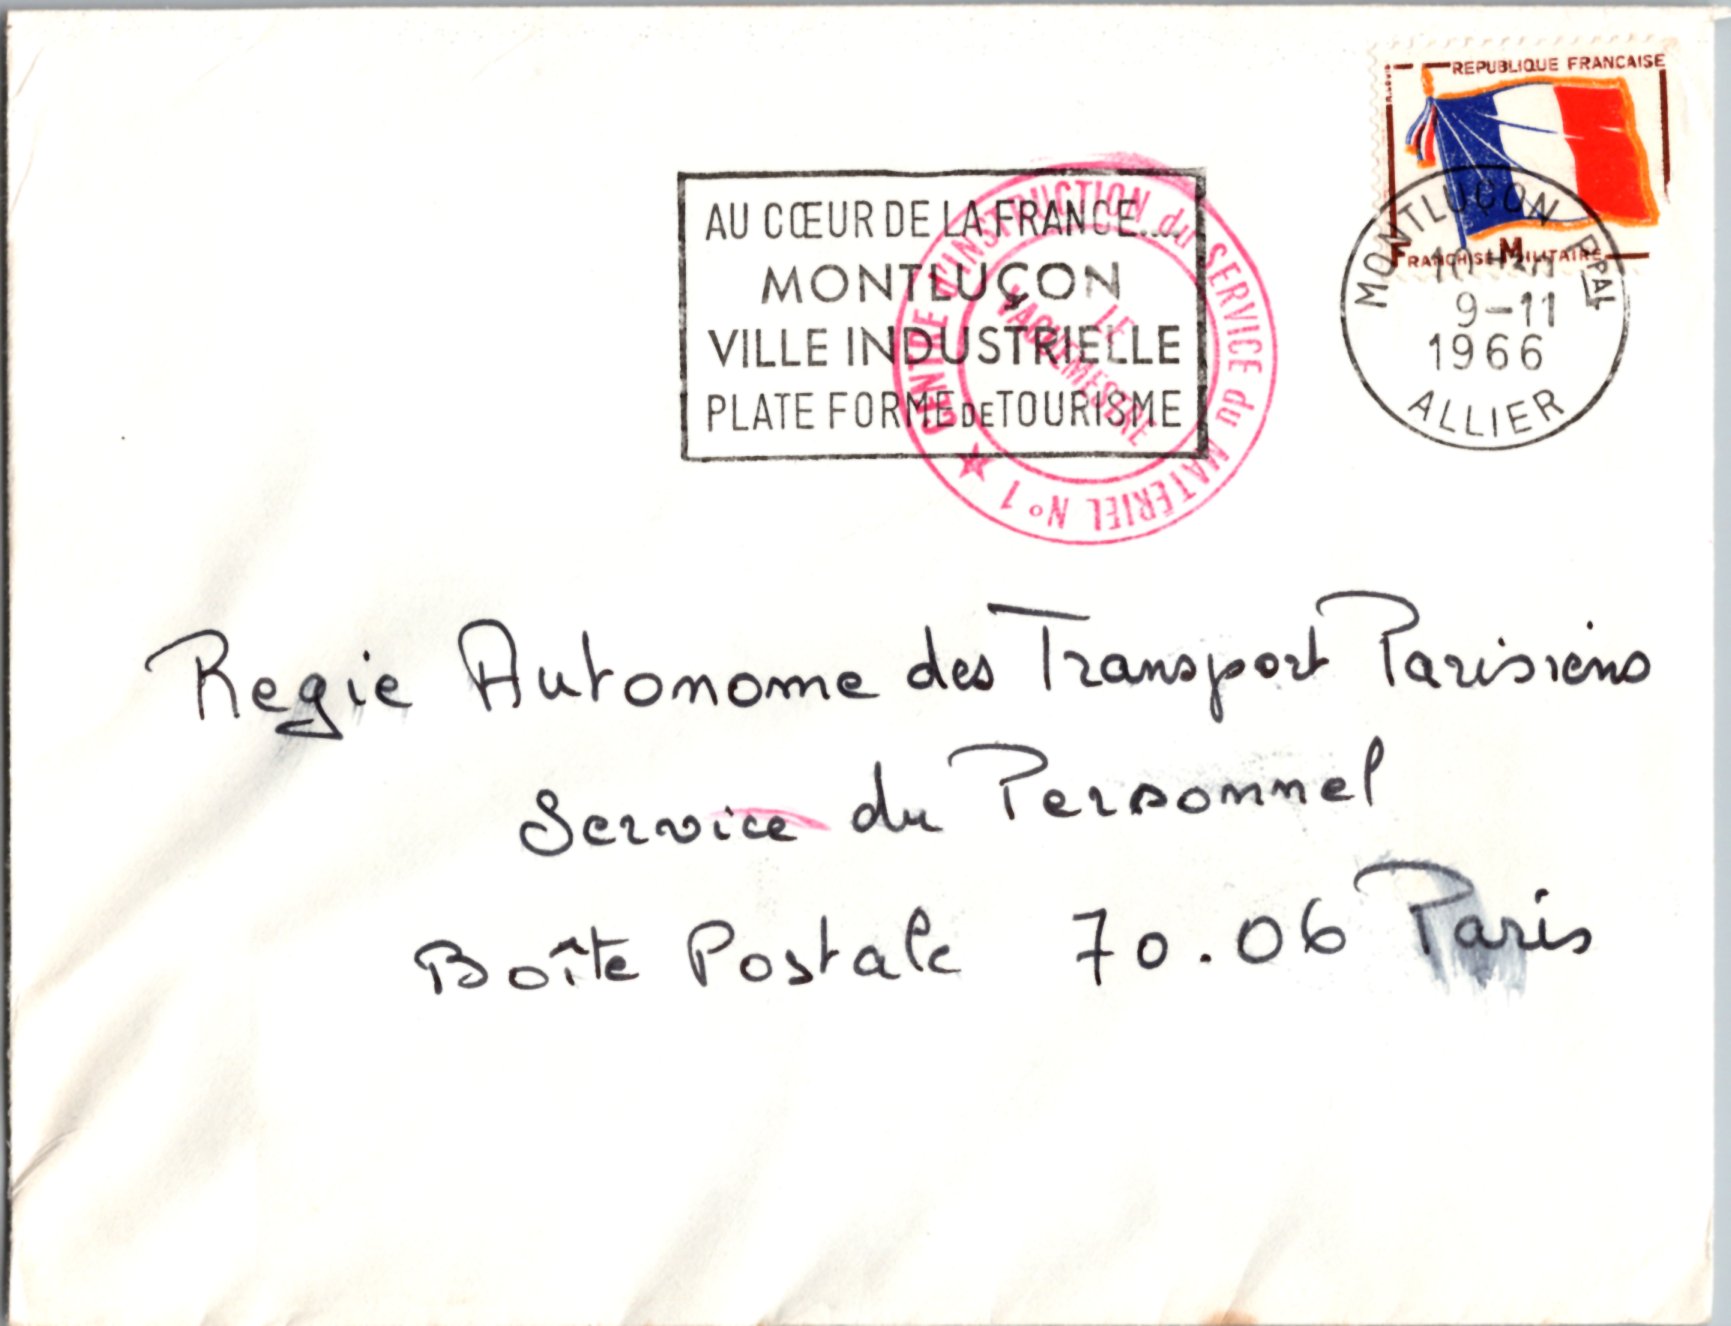 REPUBLIQUE FRANCAISE
FRANCHISE MILITAIRE
MONTLUÇON PPAL
9-11
1966
ALLIER
AU CŒUR DE LA FRANCE....
MONTLUÇON
VILLE INDUSTRIELLE
PLATE FORME DE TOURISME
CENTRE d'INSTRUCTION du SERVICE du MATERIEL N° 1
LE
VAGUEMESTRE
Regie Autonome des Transport Parisiens
Service du Personnel
Boîte Postale 70.06 Paris